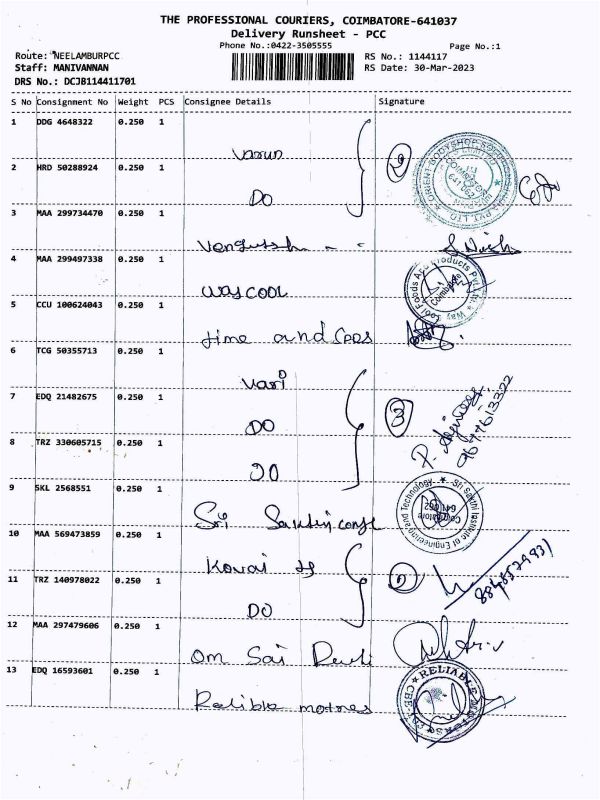 THE PROFESSIONAL COURIERS, COIMBATORE-641037
Delivery Runsheet - PCC
Phone No.:0422-3505555 Page No.:1
Route: NEELAMBURPCC RS No.: 1144117
Staff: MANIVANNAN RS Date: 30-Mar-2023
DRS No.: DCJB114411701
S No Consignment No Weight PCS Consignee Details Signature
1 DDG 4648322 0.250 1
Varun
2 HRD 50288924 0.250 1
DO
3 MAA 299734470 0.250 1
4 MAA 299497338 0.250 1
waycool
5 CCU 100624043 0.250 1
time and
6 TCG 50355713 0.250 1
Vari
7 EDQ 21482675 0.250 1
DO 3
8 TRZ 330605715 0.250 1
DO
9 SKL 2568551 0.250 1
Sri
10 MAA 569473859 0.250 1
Kovai
11 TRZ 140978022 0.250 1
DO
8848529931
12 MAA 297479606 0.250 1
Om Sai
13 EDQ 16593601 0.250 1
RELIABLE